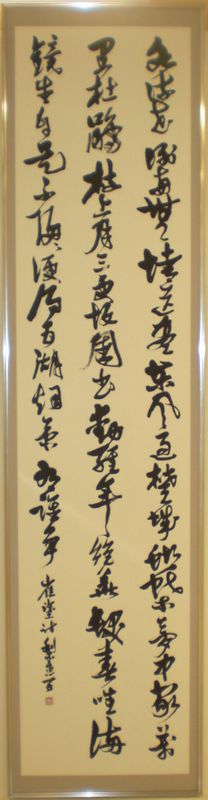 水流花謝両無情送盡東風過楚城蝴蝶夢中家萬
里杜鵑枝上月三更故園書動經年絶華髪春唯満
鏡生自是不歸〻便得五湖烟景有誰爭 崔塗詩